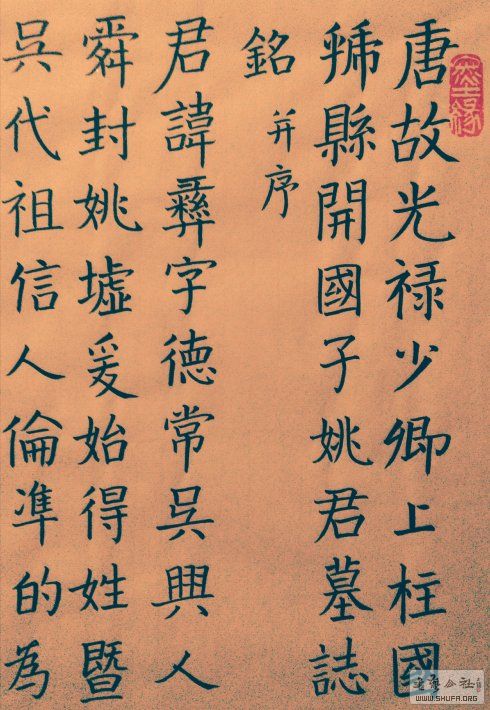 唐故光禄少卿上柱國
虢縣開國子姚君墓誌
銘并序
君諱彝字德常吳興人
舜封姚墟爰始得姓暨
吳代祖信人倫準的為
WWW.SHUFA.ORG